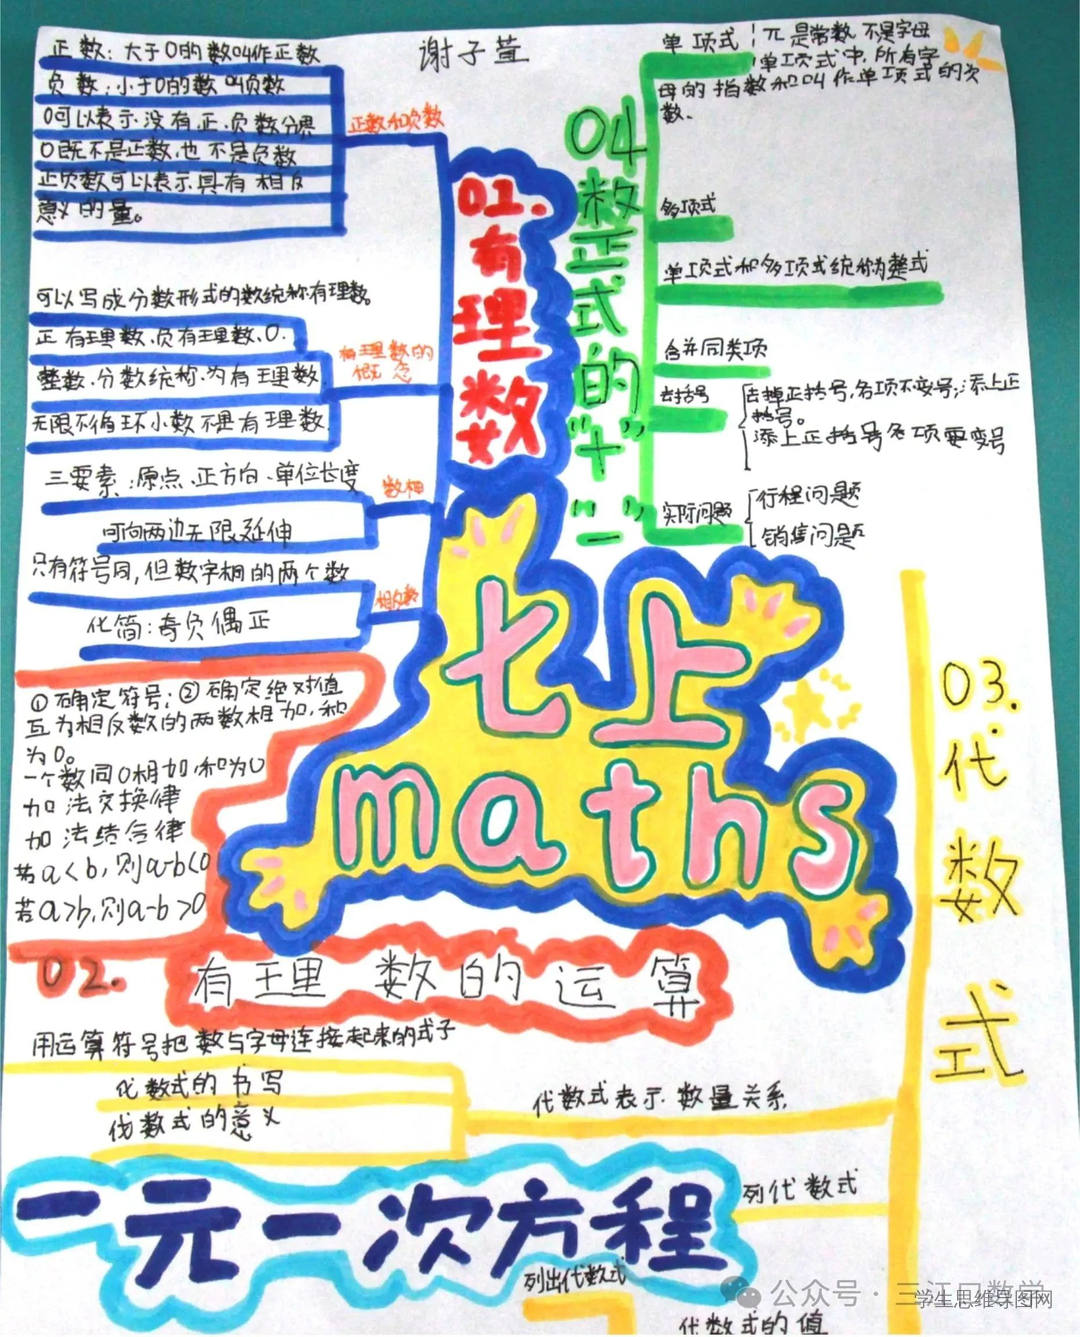 谢子萱
正数：大于0的数叫作正数
负数：小于0的数叫负数
0可以表示没有，正、负数分界
0既不是正数，也不是负数
正负数可以表示具有相反
意义的量。
正数和负数
01.
有理数
可以写成分数形式的数统称有理数。
正有理数、负有理数、0.
整数、分数统称为有理数
无限不循环小数不是有理数.
有理数的
概念
三要素：原点、正方向、单位长度
可向两边无限延伸
数轴
只有符号同，但数字相的两个数
化简：奇负偶正
相反数
04
数正式的
“十”
“一”
单项式
π是常数不是字母
单项式中，所有字
母的指数和叫作单项式的次
数。
多项式
单项式和多项式统称为整式
合并同类项
去括号
去掉正括号，各项不变号；添上正
括号。
添上正括号各项要变号
实际问题
行程问题
销售问题
七上
maths
①确定符号；②确定绝对值
互为相反数的两数相加，和
为0。
一个数同0相加和为0
加法交换律
加法结合律
若a<b，则a-b<0
若a>b，则a-b>0
02.
有理数的运算
03.
代数式
用运算符号把数与字母连接起来的式子
代数式的书写
代数式的意义
代数式表示数量关系
列代数式
一元一次方程
列出代数式
代数式的值
公众号·三江口数学
学生思维导图网